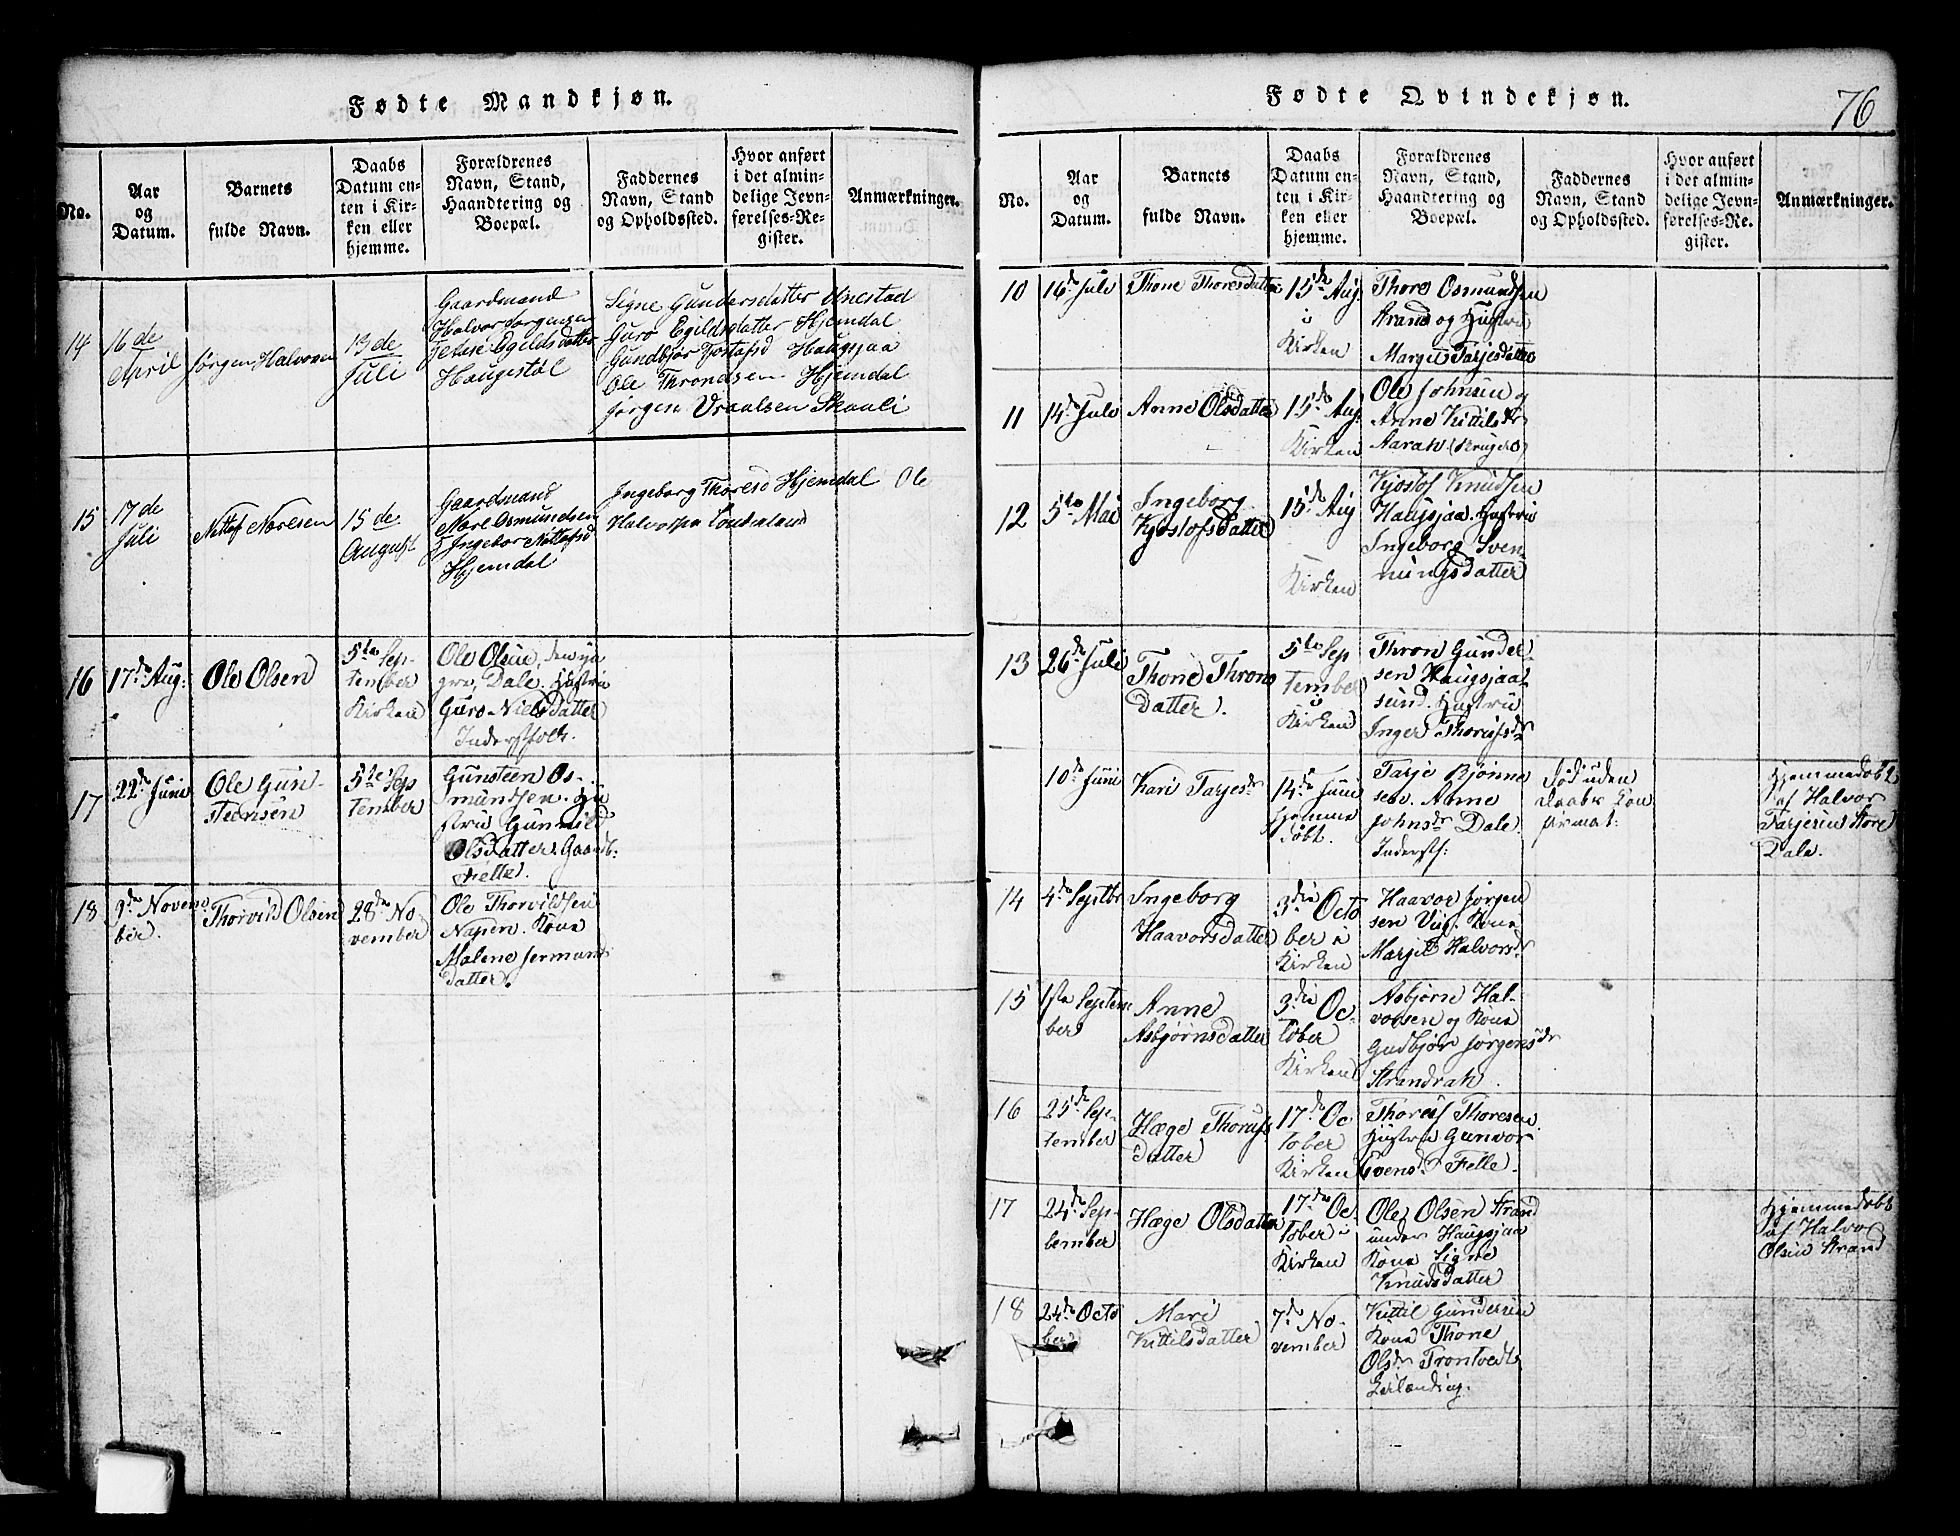 Fødte Mandkjøn.
No.
Aar
og
Datum.
Barnets
fulde Navn.
Daabs
Datum en-
ten i Kir-
ken eller
hjemme.
Forældrenes
Navn, Stand,
Haandtering og
Boepæl.
Faddernes
Navn, Stand
og Opholdssted.
Hvor anført
i det almin-
delige Jevn-
førelses-Re-
gister.
Anmærkninger.
14
16 de
April
Jørgen Halvorsen
13 de
Juli
Gaardmand
Halvor Jørgensen
Egildsdatter
Haugestøl
Signe Gundersdatter Unestad
Guro Egildsdatter Hjemdal
Gundbjør Haugsjaa
Ole Throndsen Hjemdal
Jørgen Vraalsen Skaali
15
17 de
Juli
15 de
August
Gaardmand
Osmundsen
Ingebor
Hjemdal
Ingeborg Thoresd Hjemdal Ole
16
17de Aug:
Ole Olsen
5te Sep-
tember
Kirken
Ole Olsen,
Dale. Hustru
Guro Nielsdatter
Inderstfolk.
17
22de Juni
Ole Gun-
stensen
5te Sep
tember
Gunsteen Os-
mundsen. Hu
stru Gunnild
Olsdatter
Felle.
18
9de Novem-
ber.
Thorvild Olsen
28de No-
vember
Ole Thorvildsen
Kone
Malene
datter.
Fødte Qvindekjøn.
76
No.
Aar
og
Datum.
Barnets
fulde Navn.
Daabs
Datum en-
ten i Kir-
ken eller
hjemme.
Forældrenes
Navn, Stand,
Haandtering og
Boepæl.
Faddernes
Navn, Stand
og Opholdssted.
Hvor anført
i det almin-
delige Jevn-
førelses-Re-
gister.
Anmærkninger.
10
16de Juli
Thone Thoresdatter
15de Aug
i
Kirken
Thore Osmundsen
Strand og Hustru
Margit Tarjesdatter
11
14de Juli
Anne Olsdatter
15de Aug.
Kirken
Ole Johnsen og
Anne Kittilsdr
12
5te Mai
Ingeborg
Kjostofsdatter
15de Aug
Kirken
Kjostof Knudsen
Haugsjaa. Hustru
Ingeborg Sven
nungsdatter
13
26de Juli
Thone Throns
datter.
5te Sep
tember
i
Kirken
Thron Gunder
sen Haugsjaa
sund. Hustru
Inger
10de Juni
Kari Tarjesdr
14de Juni
hjemme
døbt.
Tarje Bjønne
sen. Anne
Johnsdr Dale.
Inderstf:
Død uden
Daabs Con
firmat:
Hjemmedøbt
af Halvor
Tarjesen Store
Dale.
14
4de Septbr
Ingeborg
Haavorsdatter
3die Octo
ber i
Kirken
Haavor Jørgen
sen Vig. Kone
Margit Halvorsdr
15
1ste Septem
ber
Anne
Asbjørnsdatter
3die Oc-
tober
Kirken
Asbjørn Hal-
vorsen og Kone
Gudbjør Jørgensdr
16
25de Sep-
tember
Hæge Thorufs
datter
17de Oc
tober
Kirken
Thoresen
Hustru Gunvor
Svensd. Felle.
17
24de Sep-
tember
Hæge Olsdatter
17de Oc
tober i
Kirken
Ole Olsen Strand
under Haugsjaa
Kone Signe
Knudsdatter
Hjemmedøbt
af Halvor
Olsen Strand
18
24de Octo
ber
Mari
Kittilsdatter
7de No-
vember
Kittil Gundersen
Kone Thone
Olsdr Trontvedt